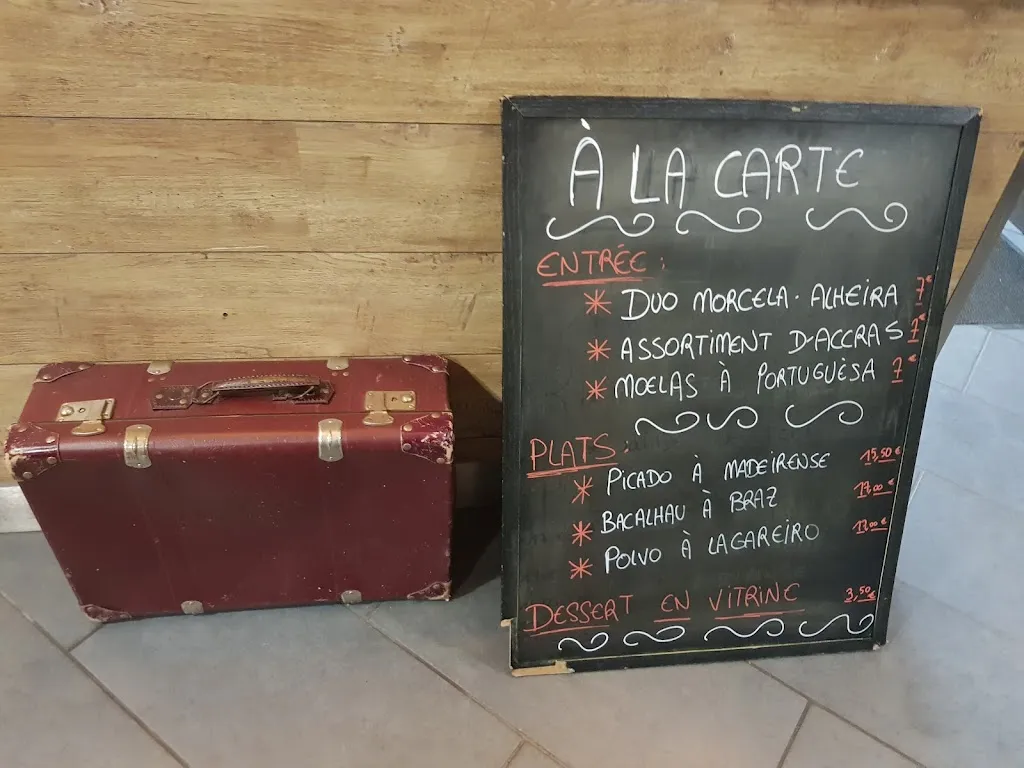 À LA CARTE
ENTRÉE :
* DUO MORCELA. ALHEIRA 7€
* ASSORTIMENT D'ACCRAS 7€
* MOELAS À PORTUGUÈSA 7€
PLATS :
* PICADO À MADEIRENSE 15,50€
* BACALHAU À BRAZ 17,00€
* POLVO À LAGAREIRO 17,00€
DESSERT EN VITRINE 3,50€